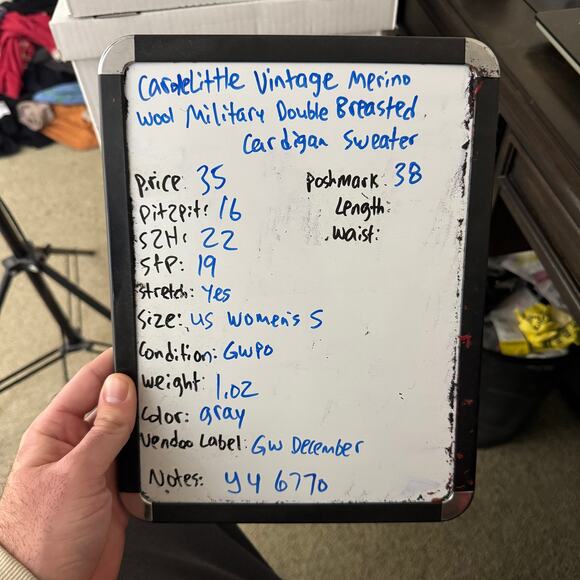 CaroleLittle Vintage Merino
Wool Military Double Breasted
Cardigan Sweater
price: 35
Poshmark 38
pit2pit: 16
Length:
S2H: 22
Waist:
STP: 19
Stretch: Yes
Size: US Women's S
Condition: GWPO
Weight: 1.02
Color: gray
Vendoo Label: GW December
Notes: Y4 6770